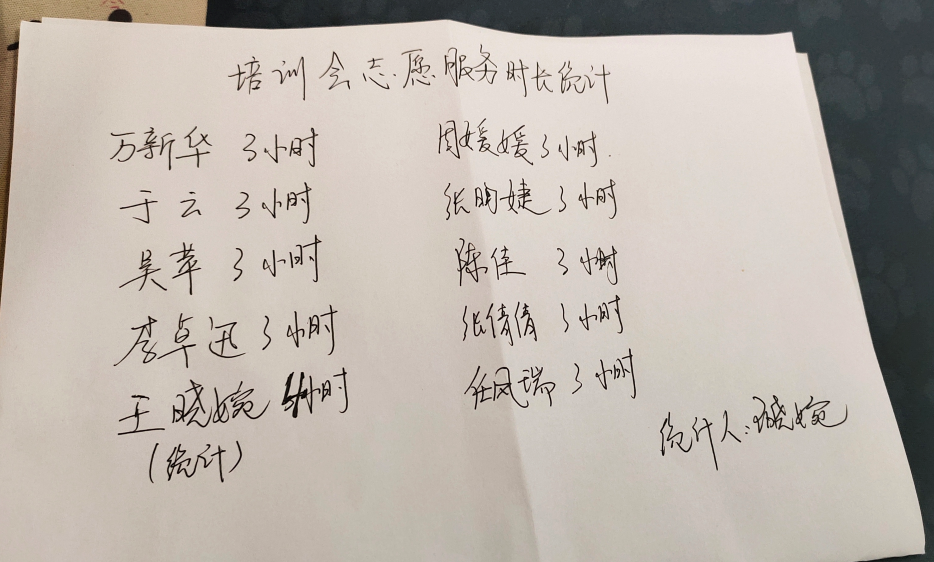 培训会志愿服务时长统计
万新华 3小时
于云 3小时
吴苹 3小时
李卓迅 3小时
王晓婉 小时
(统计)
周媛媛 3小时.
张婕 3小时
陈佳 3小时
张倩倩 3小时
任凤瑞 3小时
统计人:王晓婉